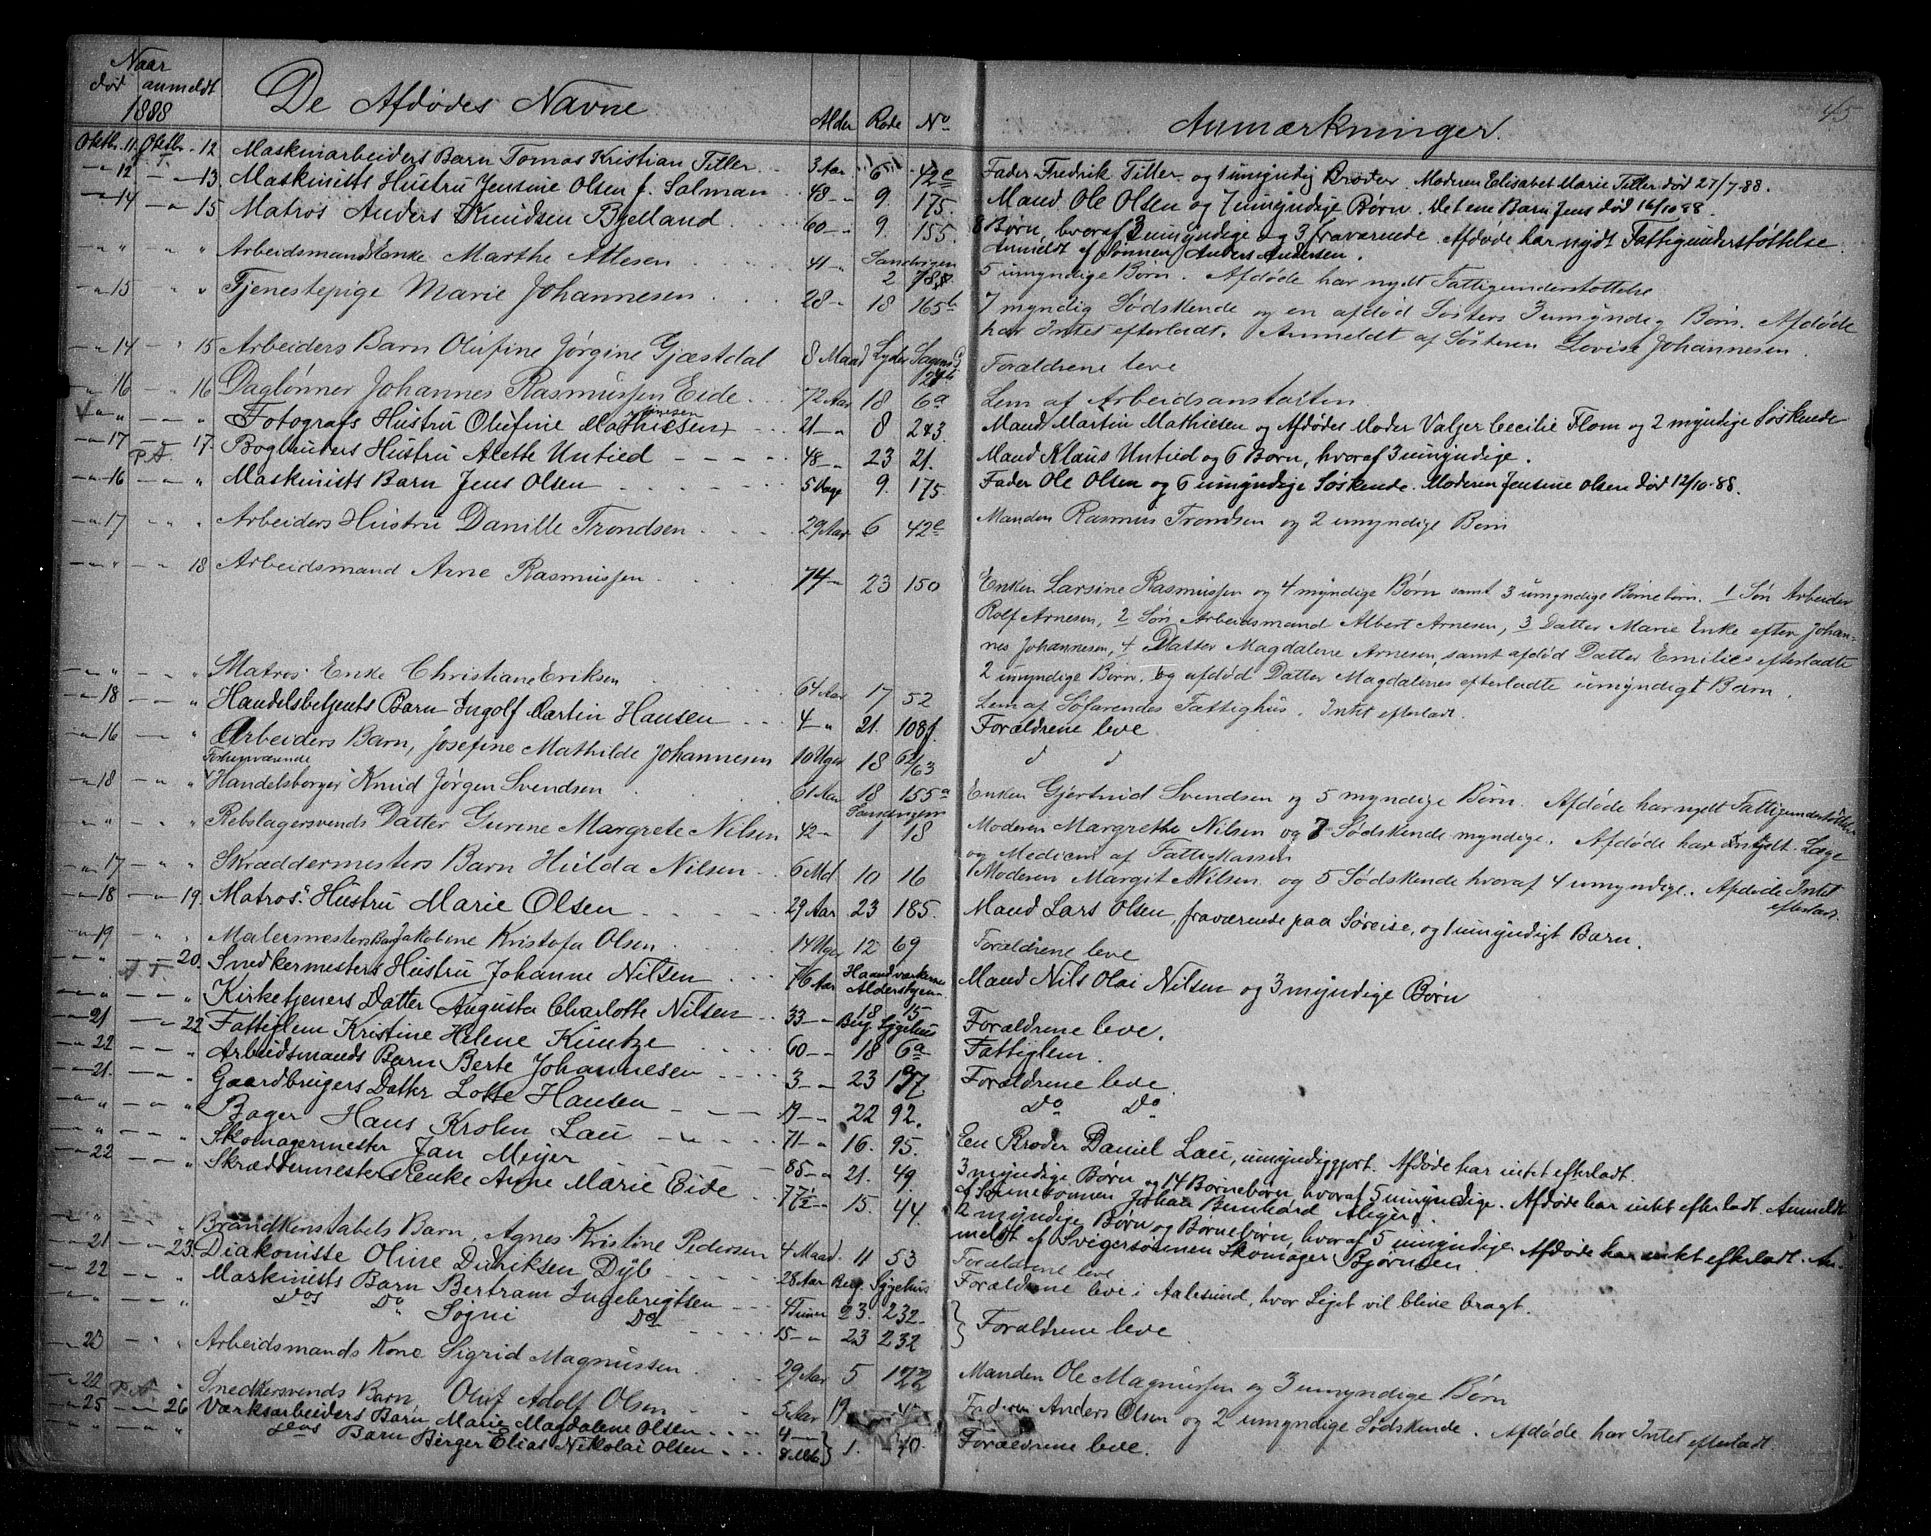 45
Naar
død anmeldt
1888
De Afdødes Navne Alder Rode No Anmærkninger.
Oktbr. 11. Oktbr. 12 Maskinarbeiders Barn Tomas Kristian Titler 3 Aar 6 42e Fader Fredrik Titler og 1 umyndig Broder. Moderen Elisabet Marie Titler død 27/7.88.
" 12 " 13. Maskinists Hustru Jensine Olsen f. Salman 48 " 9. 175. Mand Ole Olsen og 7 umyndige Børn. Det ene Barn Jens død 16/10 88.
" 14 " 15 Matros Anders Knudsen Bjelland 60 " 9. 155. 8 Børn, hvoraf 3 umyndige og 3 fraværende. Afdøde har nydt Fattigunderstøttelse.
Anmeldt af Sønnen Anders Andersen.
" " " " Arbeidsmands Enke Marthe Attesen 41 " Sandvigen 2 78 5 umyndige Børn. Afdøde har nydt Fattigunderstøttelse
" 15 " " Tjenestepige Marie Johannesen 28 " 18 165b 7 myndig Sødskende og en afdød Søsters 3 umyndig Børn. Afdøde
har Intet efterladt. Anmeldt af Søsteren Lovise Johannesen.
" 14 " 15 Arbeiders Barn Olufine Jørgine Gjæstdal 8 Maad Lyder Sagens G Forældrene leve
" 16 16 Daglønner Johannes Rasmussen Eide 72 Aar 18 6a Lem af Arbeidsanstalten
" " " " Fotografs Hustru Olufine Mathiesen 21 " 8 243. Mand Martin Mathiesen og Afdødes Moder Valjer Cecilie Flom og 2 myndige Søskende
" 17 P.A. 17. Bogbinders Hustru Alette Untied 48 " 23 21. Mand Klaus Untied og 6 Børn, hvoraf 3 umyndige.
" 16 " " Maskinists Barn Jens Olsen 5 Dage 9. 175 Fader Ole Olsen og 6 umyndige Søskende. Moderen Jensine Olsen død 12/10.88.
" 17 " " Arbeiders Hustru Danille Trondsen 29 Aar 6 42e Manden Rasmus Trondsen og 2 umyndige Børn
" " " 18 Arbeidsmand Arne Rasmussen 74 " 23 150 Enken Larsine Rasmussen og 4 myndige Børn samt 3 umyndige Børnebørn. 1 Søn Arbeider
Rolf Arnesen, 2 Søn Arbeidsmand Albert Arnesen, 3 Datter Marie Enke efter Johan-
nes Johannesen, 4 Datter Magdalene Arnesen, samt afdød Datter Emilies efterladte
2 umyndige Børn. og afdød Datter Magdalenes efterladte umyndigt Barn.
" " Matros Enke Christiane Eriksen 64 Aar 17 52 Lem af Søfarendes Fattighus. Intet efterladt.
" 18 " Handelsbetjents Barn Ingolf Martin Hansen 4 " 21. 108f. Forældrene leve
" 16 " Arbeiders Barn, Josefine Mathilde Johannesen 10 Uger 18 62/63 d d
" 18 " " Forhenværende Handelsborger Knud Jørgen Svendsen 61 Aar 18 155a Enken Gjertrud Svendsen og 5 myndige Børn. Afdøde har nydt Fattigunderstøttelse
" " " " Rebslagersvends Datter Gurine Margrete Nilsen 42 " Sandvigen 1 18 Moderen Margrethe Nilsen og 7 Sødskende myndige. Afdøde har nydt Læge
og Medicin af Fattigkassen
" 17 " " Skræddermesters Barn Hulda Nilsen 6 Md 10 16 Moderen Margit Nilsen og 5 Sødskende hvoraf 4 umyndige. Afdøde Intet
efterladt.
" 18 " 19. Matros Hustru Marie Olsen 29 Aar 23 185. Mand Lars Olsen, fraværende paa Søreise, og 1 umyndigt Barn.
" 19 " Malermesters Barn Jakobine Kristofa Olsen 14 Uger 12 69 Forældrene leve
" 20. Snedkermesters Hustru Johanne Nilsen 76 Aar Haandværkernes Alderhjem Mand Nils Olai Nilsen og 3 myndige Børn
" " " " Kirketjeners Datter Augusta Charlotte Nilsen 33 " 18 15 Berg. Sygehus Forældrene leve.
" 21 " 22 Fattiglem Kristine Helene Kuntze 60 " 18 6a Fattiglem.
" 22 " " Arbeidsmands Barn Berte Johannesen 3 " 23 197 Forældrene leve
" 21. " " Gaardbrugers Datter Lotte Hansen 19 " 22 92. Do Do
" " " " Bager Hans Krohn Lau 71 " 16. 95. En Broder Daniel Lau, umyndiggjort. Afdøde har intet efterladt.
" " " " Skomagermester Jan Meyer 85 " 21. 49. 3 myndige Børn og 14 Børnebørn, hvoraf 5 umyndige. Afdøde har intet efterladt. Anmeldt
af Sønnesønnen Johan Bernhard Meyer.
" 22 " " Skræddermesters Enke Anne Marie Eide 77½ " 15. 44. 2 myndige Børn og Børnebørn, hvoraf 5 umyndige. Afdøde har intet efterladt. An-
meldt af Svigersønnen Skomager Bjørnsen.
" " " " Brandkonstabels Barn, Agnes Kristine Pedersen 4 Maad. 11 53 Forældrene leve
" 21 " 23. Diakonisse Oline Didriksen Dyb 28 Aar Berg. Sygehus Forældrene leve i Aalesund, hvor Liget vil blive bragt.
" 22 " " Maskinists Barn Bertram Ingebrigtsen 4 Timer 23. 232. } Forældrene leve
" " " " Dos Do Sogni Do 15 " 23 232
" 23 " " Arbeidsmands Kone Sigrid Magnussen 29 Aar 5 122 Manden Ole Magnussen og 3 umyndige Børn
" 22 P.A. " Snedkersvends Barn, Oluf Adolf Olsen 5 Aar 19 Faderen Anders Olsen og 2 umyndige Sødskende. Afdøde har Intet efterladt
" 25 " 26 Værksarbeiders Barn Marie Magdalene Olsen 4 " } 1. 40. Forældrene leve.
" " " sens Barn Birger Elias Nikolai Olsen 8 Mdr